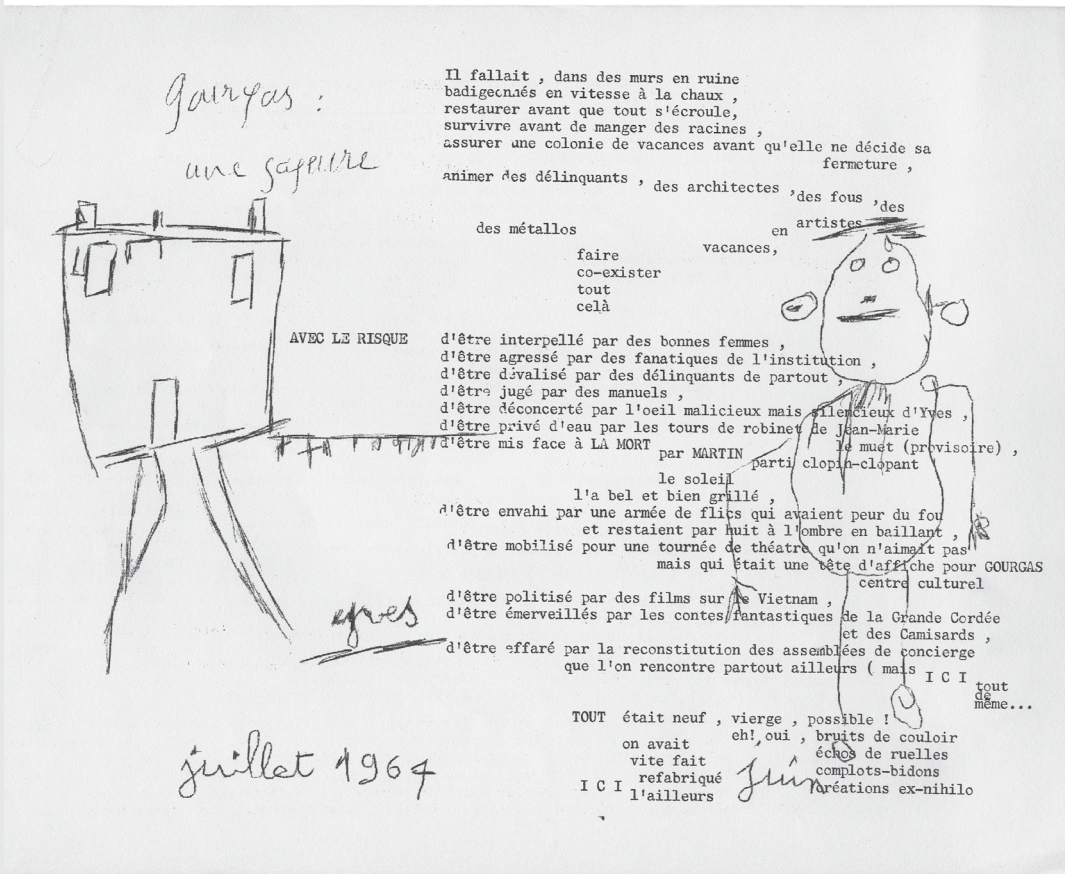 Gourgas :
une gageure
Il fallait , dans des murs en ruine
badigeonnés en vitesse à la chaux ,
restaurer avant que tout s'écroule,
survivre avant de manger des racines ,
assurer une colonie de vacances avant qu'elle ne décide sa
fermeture ,
animer des délinquants , des architectes ,des fous ,des
artistes
des métallos en vacances,
faire
co-exister
tout
celà
AVEC LE RISQUE d'être interpellé par des bonnes femmes ,
d'être agressé par des fanatiques de l'institution ,
d'être dévalisé par des délinquants de partout ,
d'être jugé par des manuels ,
d'être déconcerté par l'oeil malicieux mais silencieux d'Yves ,
d'être privé d'eau par les tours de robinet de Jean-Marie
le muet (provisoire) ,
d'être mis face à LA MORT par MARTIN parti clopin-clopant
le soleil
l'a bel et bien grillé ,
d'être envahi par une armée de flics qui avaient peur du fou
et restaient par huit à l'ombre en baillant ,
d'être mobilisé pour une tournée de théatre qu'on n'aimait pas
mais qui était une tête d'affiche pour GOURGAS
centre culturel
d'être politisé par des films sur le Vietnam ,
d'être émerveillés par les contes fantastiques de la Grande Cordée
et des Camisards ,
d'être effaré par la reconstitution des assemblées de concierge
que l'on rencontre partout ailleurs ( mais I C I
tout
de
même...
yves
TOUT était neuf , vierge , possible !
eh! oui , bruits de couloir
échos de ruelles
complots-bidons
créations ex-nihilo
on avait
vite fait
refabriqué
I C I l'ailleurs
juin
juillet 1967